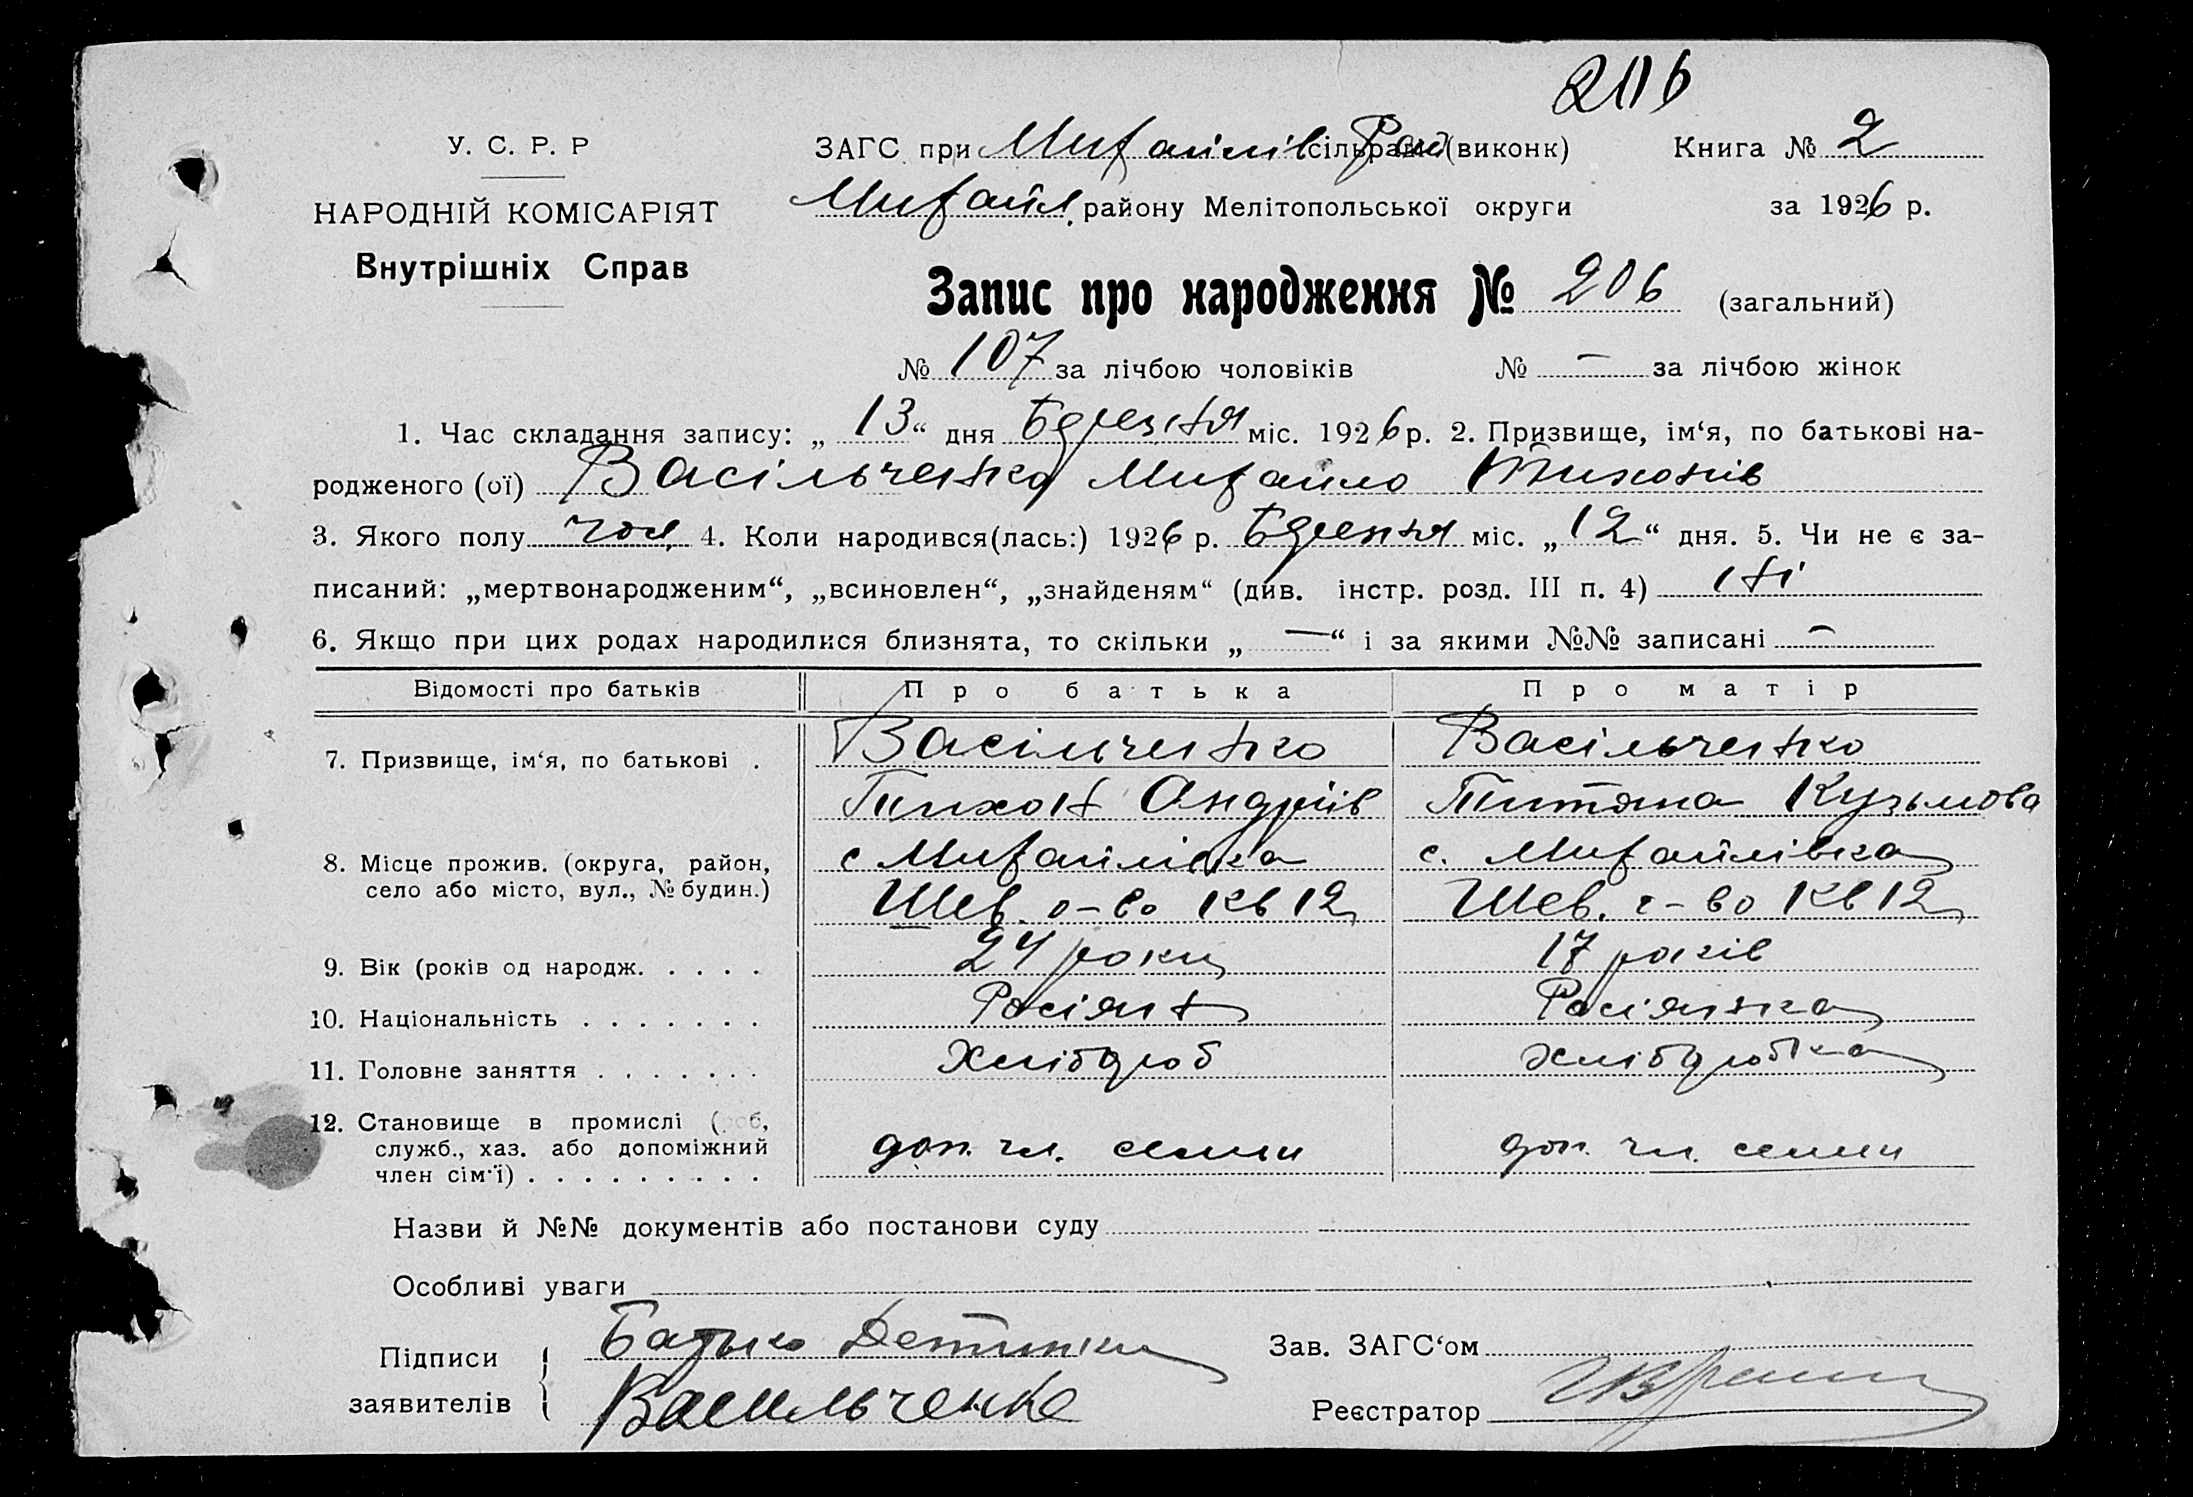 206
У. С. Р. Р
ЗАГС при Михайлів сільраді (виконк) Рай
Книга № 2
НАРОДНІЙ КОМІСАРІЯТ
Михайл. району Мелітопольської округи
за 1926 р.
Внутрішніх Справ
Запис про народження № 206 (загальний)
№ 107 за лічбою чоловіків № — за лічбою жінок
1. Час складання запису: „13“ дня Березня міс. 1926 р. 2. Призвище, ім‘я, по батькові на-
родженого (ої) Васільченко Михайло Тихонів
3. Якого полу чол. 4. Коли народився(лась:) 1926 р. Березня міс. „12“ дня. 5. Чи не є за-
писаний: „мертвонародженим“, „всиновлен“, „знайденям“ (див. інстр. розд. III п. 4) ні
6. Якщо при цих родах народилися близнята, то скільки „—“ і за якими №№ записані —
Відомості про батьків Про батька Про матір
7. Призвище, ім‘я, по батькові . Васільченко Васільченко
Тихон Андріїв Титяна Кузьмова
8. Місце прожив. (округа, район, с Михайлівка с. Михайлівка
село або місто, вул., № будин.) Шев. о-во кв 12 Шев. о-во кв 12
9. Вік (років од народж. . . . . 24 роки 17 років
10. Національність . . . . . . . Росіян Росіянка
11. Головне заняття . . . . . . . Хлібороб хлібробка
12. Становище в промислі (роб,
служб., хаз. або допоміжний доп. чл. семи доп. чл. семи
член сім‘ї) . . . . . . . . .
Назви й №№ документів або постанови суду
Особливі уваги
Підписи Батько Детинки
Зав. ЗАГС‘ом
заявителів Васильченко
Реєстратор